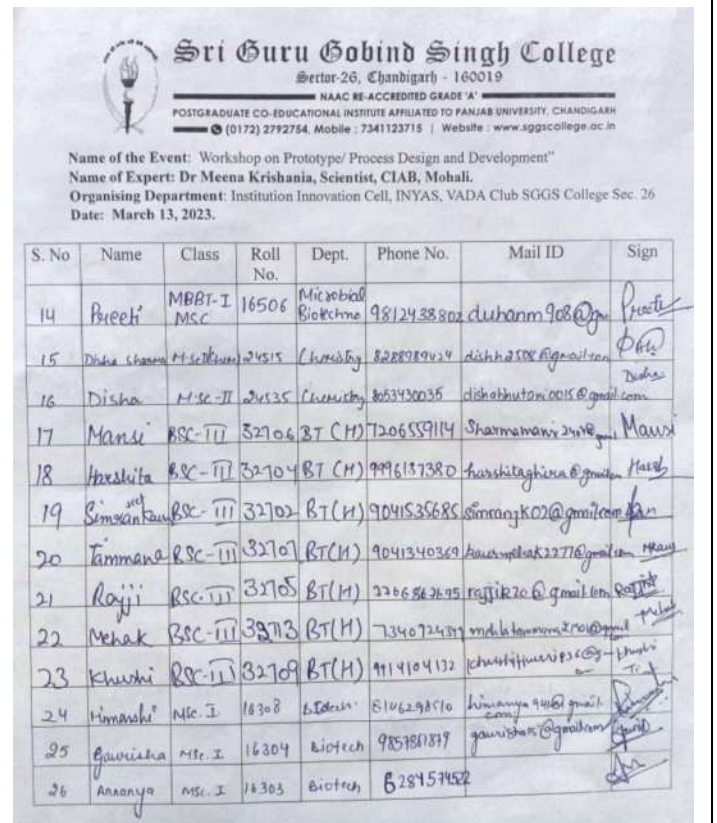 Sri Guru Gobind Singh College
Sector-26, Chandigarh - 160019
NAAC RE-ACCREDITED GRADE 'A'
POSTGRADUATE CO-EDUCATIONAL INSTITUTE AFFILIATED TO PANJAB UNIVERSITY, CHANDIGARH
(0172) 2792754, Mobile : 7341123715 | Website : www.sggscollege.ac.in
Name of the Event: Workshop on Prototype/ Process Design and Development"
Name of Expert: Dr Meena Krishania, Scientist, CIAB, Mohali.
Organising Department: Institution Innovation Cell, INYAS, VADA Club SGGS College Sec. 26
Date: March 13, 2023.
S. No Name Class Roll No. Dept. Phone No. Mail ID Sign
14 Preeti MBBT-I MSC 16506 Microbial Biotechno 9812438802 duhanm908@gm Preeti
15 Disha Sharma 24515 Chemistry 8288989424 dishh2508@gmail.com
16 Disha M.sc-II 24535 Chemistry 8053430035 dishabhutani0015@gmail.com Disha
17 Mansi BSC-III 32706 BT (H) 7206559114 Mansi
18 Harshita BSC-III 32704 BT (H) 9996137380 Harsh
19 Simranjeet Kaur BSC-III 32702 BT(H) 9041535685 simranjk02@gmail.com
20 Tammana BSC-III 32707 BT(H) 9041340369
21 Rajji BSC-III 32705 BT(H) rajjik20@gmail.com
22 Mehak BSC-III BT(H) Mehak
23 Khushi BSC-III 32709 BT(H) 9914104132 Khushi
24 Himanshi MSc. I 16308 Biotech.
25 Gaurisha MSc. I 16304 Biotech
26 Annanya MSc. I 16303 Biotech 628457452